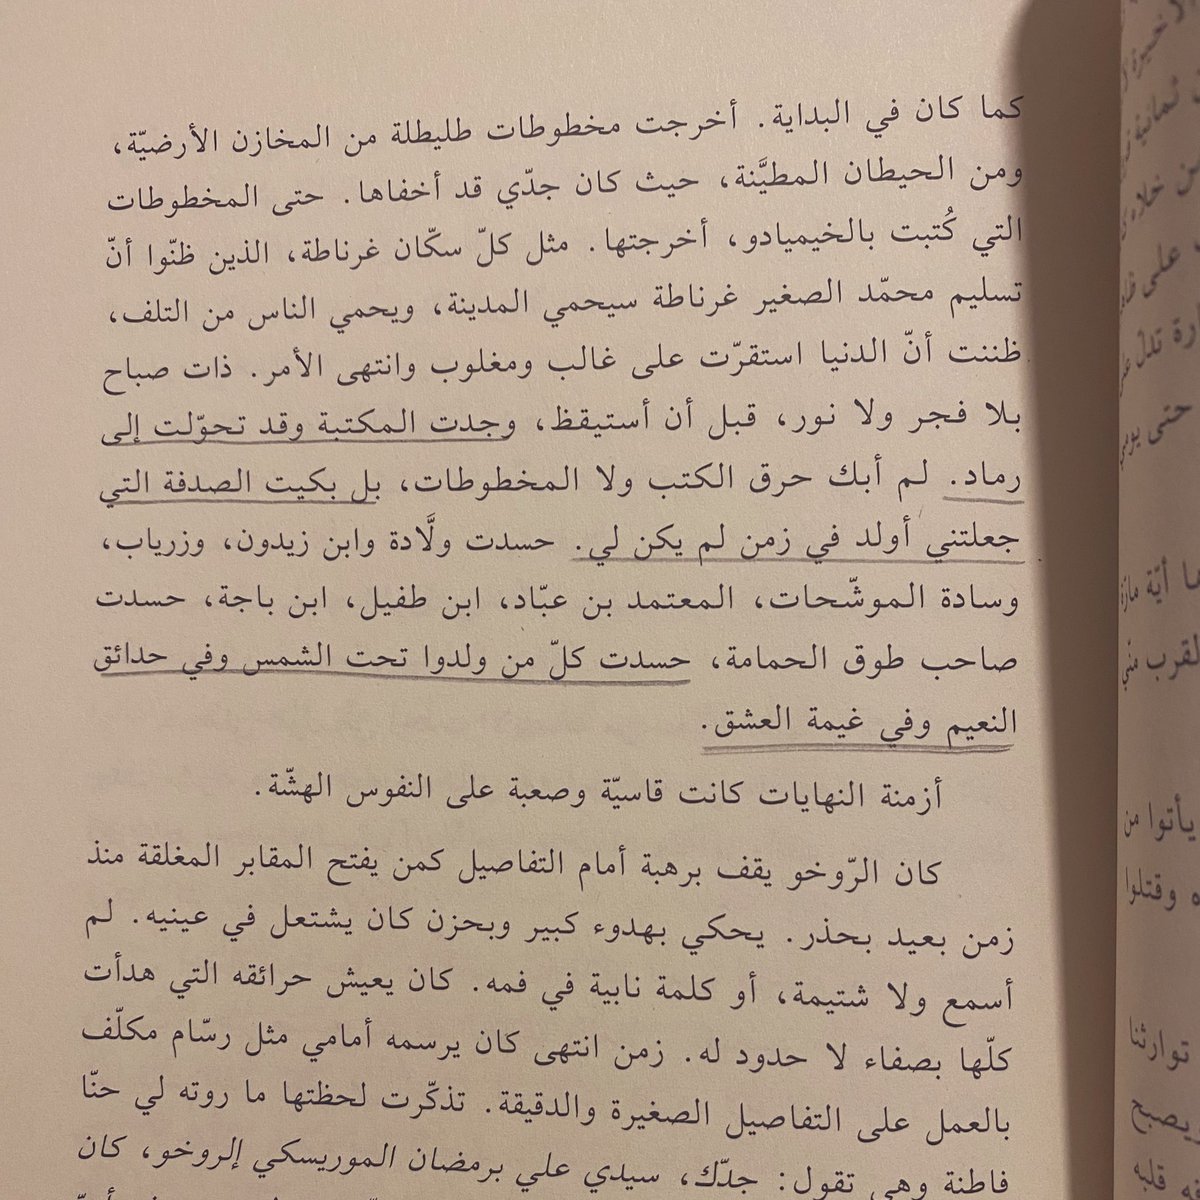 كما كان في البداية. أخرجت مخطوطات طليطلة من المخازن الأرضيّة،
ومن الحيطان المطيَّنة، حيث كان جدّي قد أخفاها. حتى المخطوطات
التي كُتبت بالخيميادو، أخرجتها. مثل كلّ سكّان غرناطة، الذين ظنّوا أنّ
تسليم محمّد الصغير غرناطة سيحمي المدينة، ويحمي الناس من التلف،
ظننت أنّ الدنيا استقرّت على غالب ومغلوب وانتهى الأمر. ذات صباح
بلا فجر ولا نور، قبل أن أستيقظ، وجدت المكتبة وقد تحوّلت إلى
رماد. لم أبك حرق الكتب ولا المخطوطات، بل بكيت الصدفة التي
جعلتني أولد في زمن لم يكن لي. حسدت ولَّادة وابن زيدون، وزرياب،
وسادة الموشّحات، المعتمد بن عبّاد، ابن طفيل، ابن باجة، حسدت
صاحب طوق الحمامة، حسدت كلّ من ولدوا تحت الشمس وفي حدائق
النعيم وفي غيمة العشق.
أزمنة النهايات كانت قاسيّة وصعبة على النفوس الهشّة.
كان الرّوخو يقف برهبة أمام التفاصيل كمن يفتح المقابر المغلقة منذ
زمن بعيد بحذر. يحكي بهدوء كبير وبحزن كان يشتعل في عينيه. لم
أسمع ولا شتيمة، أو كلمة نابية في فمه. كان يعيش حرائقه التي هدأت
كلّها بصفاء لا حدود له. زمن انتهى كان يرسمه أمامي مثل رسّام مكلّف
بالعمل على التفاصيل الصغيرة والدقيقة. تذكّرت لحظتها ما روته لي حنّا
فاطنة وهي تقول: جدّك، سيدي علي برمضان الموريسكي إلروخو، كان